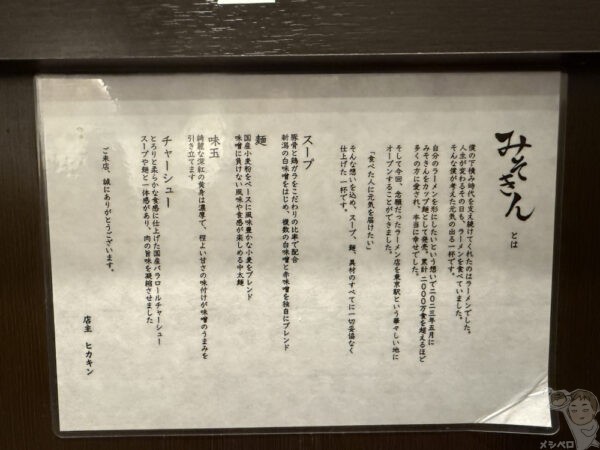 みそきん とは
僕の下積み時代を支え続けてくれたのはラーメンでした。
人生が変わるその日も、ラーメンを食べていました。
そんな僕が考えた元気の出る一杯です。
自分のラーメンを形にしたいという想いで二〇二三年五月に
みそきんをカップ麺として発売。累計二〇〇〇万食を超えるほど
多くの方に愛され、本当に幸せでした。
そして今回、念願だったラーメン店を東京駅という華々しい地に
オープンすることができました。
「食べた人に元気を届けたい」
そんな想いを込め、スープ、麺、具材のすべてに一切妥協なく
仕上げた一杯です。
スープ
豚骨と鶏ガラをこだわりの比率で配合
新潟の白味噌をはじめ、複数の白味噌と赤味噌を独自にブレンド
麺
国産小麦粉をベースに風味豊かな小麦をブレンド
味噌に負けない風味や食感が楽しめる中太麺
味玉
綺麗な深紅の黄身は濃厚で、程よい甘さの味付けが味噌のうまみを
引き立てます
チャーシュー
とろりと柔らかな食感に仕上げた国産バラロールチャーシュー
スープや麺と一体感があり、肉の旨味を凝縮させました
ご来店、誠にありがとうございます。
店主 ヒカキン
メシペロ